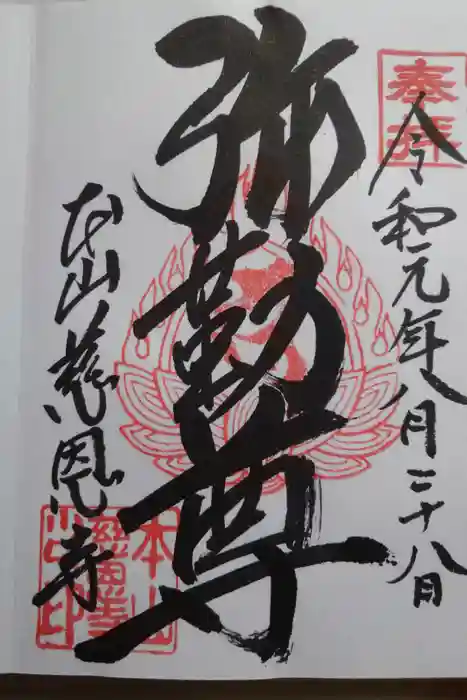 奉拝
令和元年八月二十八日
弥勒尊
本山慈恩寺
本山
慈恩寺
之印